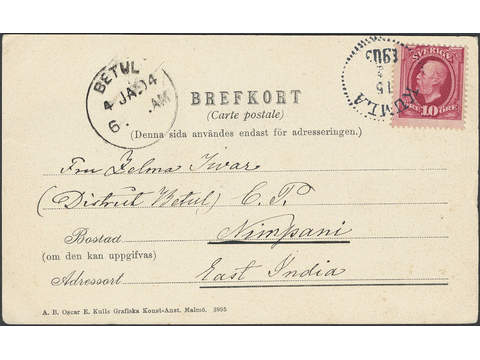 BETUL
4 JA 04
6. AM
KUMLA
15
1903
SVERIGE
10 ÖRE
BREFKORT
(Carte postale)
(Denna sida användes endast för adresseringen.)
Fru Zelma Ivar
(District Betul) C. P.
Bostad Nimpani
(om den kan uppgifvas)
Adressort East India
A. B. Oscar E. Kulls Grafiska Konst-Anst. Malmö. 2895